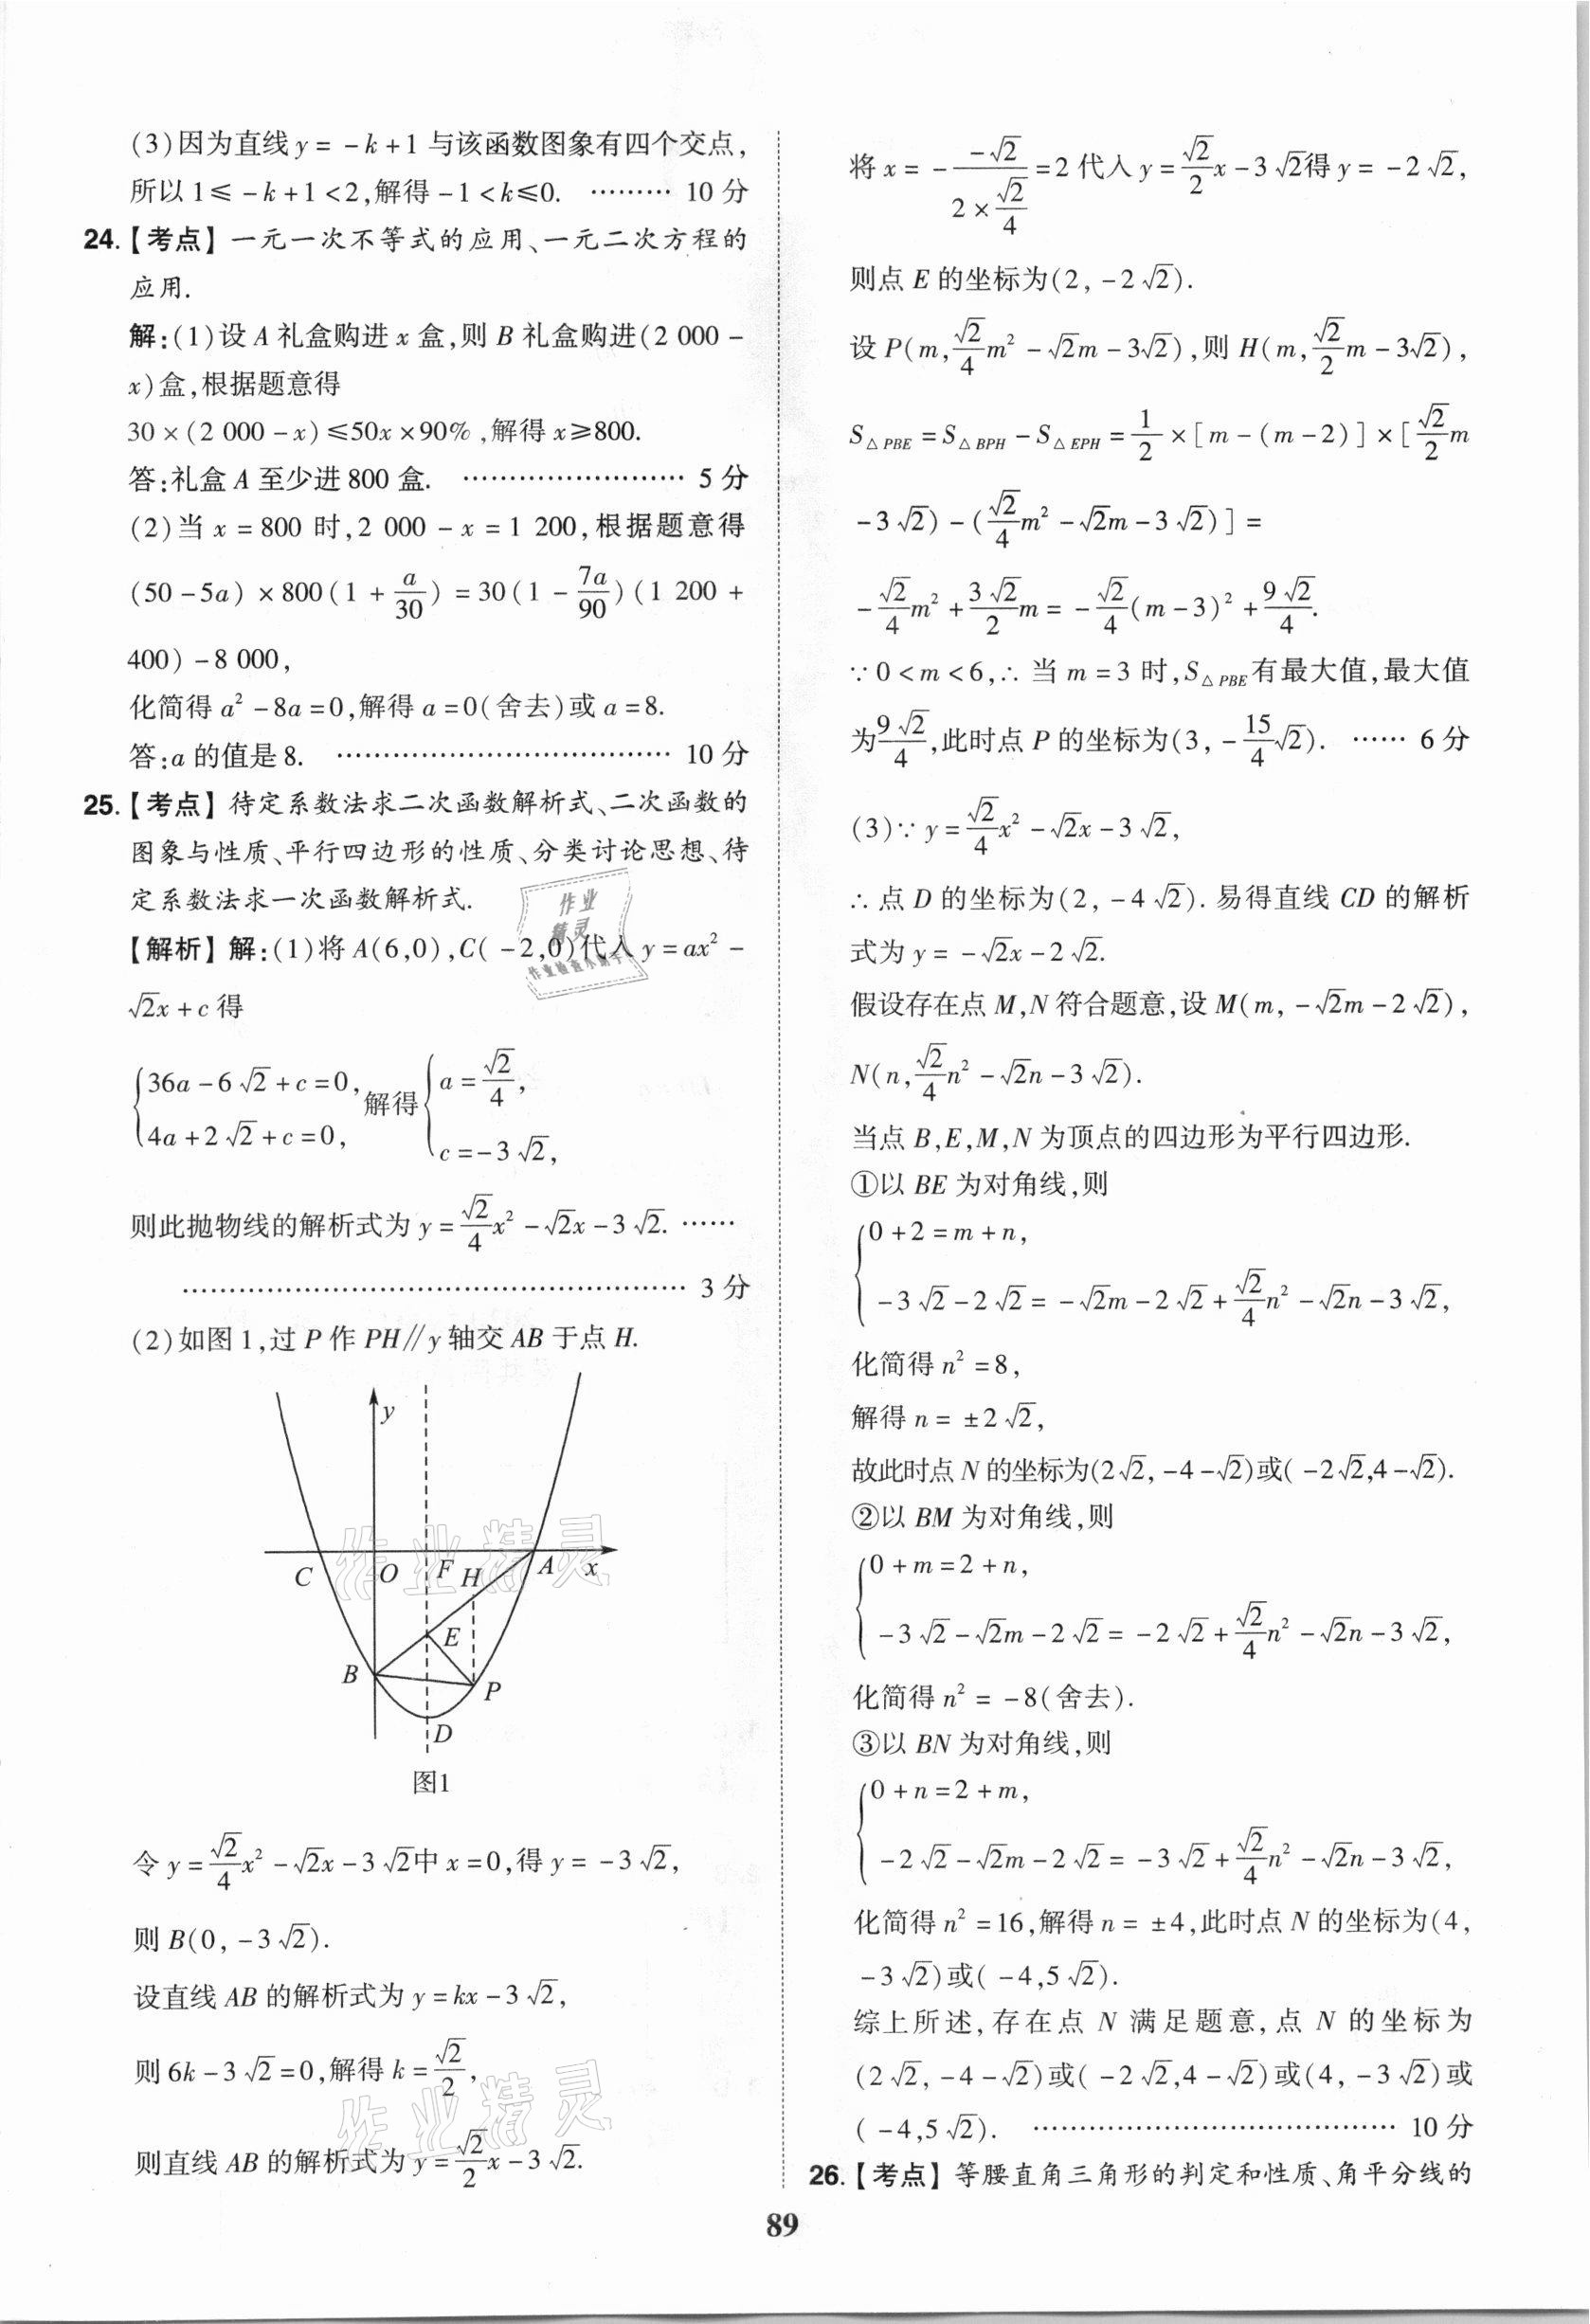 (3)因为直线 y = -k+1 与该函数图象有四个交点,
所以 1≤ -k+1<2,解得 -1<k≤0. ……… 10 分
24.【考点】一元一次不等式的应用、一元二次方程的
应用.
解:(1)设 A 礼盒购进 x 盒,则 B 礼盒购进(2 000 -
x)盒,根据题意得
30×(2 000-x)≤50x×90% ,解得 x≥800.
答:礼盒 A 至少进 800 盒. …………………… 5 分
(2)当 x=800 时,2 000-x=1 200,根据题意得
(50-5a)×800(1+a/30)=30(1-7a/90)(1 200+
400)-8 000,
化简得 a²-8a=0,解得 a=0(舍去)或 a=8.
答:a 的值是 8. ……………………………… 10 分
25.【考点】待定系数法求二次函数解析式、二次函数的
图象与性质、平行四边形的性质、分类讨论思想、待
定系数法求一次函数解析式.
【解析】解:(1)将 A(6,0),C(-2,0)代入 y=ax²-
√2x+c 得
{36a-6√2+c=0, 4a+2√2+c=0, 解得 {a=√2/4, c=-3√2,
则此抛物线的解析式为 y=√2/4x²-√2x-3√2. ……
……………………………………………… 3 分
(2)如图 1,过 P 作 PH∥y 轴交 AB 于点 H.
y
C O F H A x
E
B
P
D
图1
令 y=√2/4x²-√2x-3√2中 x=0,得 y=-3√2,
则 B(0,-3√2).
设直线 AB 的解析式为 y=kx-3√2,
则 6k-3√2=0,解得 k=√2/2,
则直线 AB 的解析式为 y=√2/2x-3√2.
将 x=-(-√2)/(2×√2/4)=2 代入 y=√2/2x-3√2得 y=-2√2,
则点 E 的坐标为(2,-2√2).
设 P(m,√2/4m²-√2m-3√2),则 H(m,√2/2m-3√2),
S△PBE=S△BPH-S△EPH=1/2×[m-(m-2)]×[√2/2m
-3√2)-(√2/4m²-√2m-3√2)]=
-√2/4m²+3√2/2m=-√2/4(m-3)²+9√2/4.
∵0<m<6,∴当 m=3 时,S△PBE有最大值,最大值
为9√2/4,此时点 P 的坐标为(3,-15/4√2). …… 6 分
(3)∵y=√2/4x²-√2x-3√2,
∴点 D 的坐标为(2,-4√2). 易得直线 CD 的解析
式为 y=-√2x-2√2.
假设存在点 M,N 符合题意,设 M(m,-√2m-2√2),
N(n,√2/4n²-√2n-3√2).
当点 B,E,M,N 为顶点的四边形为平行四边形.
①以 BE 为对角线,则
{0+2=m+n,
-3√2-2√2=-√2m-2√2+√2/4n²-√2n-3√2,
化简得 n²=8,
解得 n=±2√2,
故此时点 N 的坐标为(2√2,-4-√2)或(-2√2,4-√2).
②以 BM 为对角线,则
{0+m=2+n,
-3√2-√2m-2√2=-2√2+√2/4n²-√2n-3√2,
化简得 n²=-8(舍去).
③以 BN 为对角线,则
{0+n=2+m,
-2√2-√2m-2√2=-3√2+√2/4n²-√2n-3√2,
化简得 n²=16,解得 n=±4,此时点 N 的坐标为(4,
-3√2)或(-4,5√2).
综上所述,存在点 N 满足题意,点 N 的坐标为
(2√2,-4-√2)或(-2√2,4-√2)或(4,-3√2)或
(-4,5√2). ………………………………… 10 分
26.【考点】等腰直角三角形的判定和性质、角平分线的
89
作业
精灵
作业检查小助手
作业精灵
作业精灵